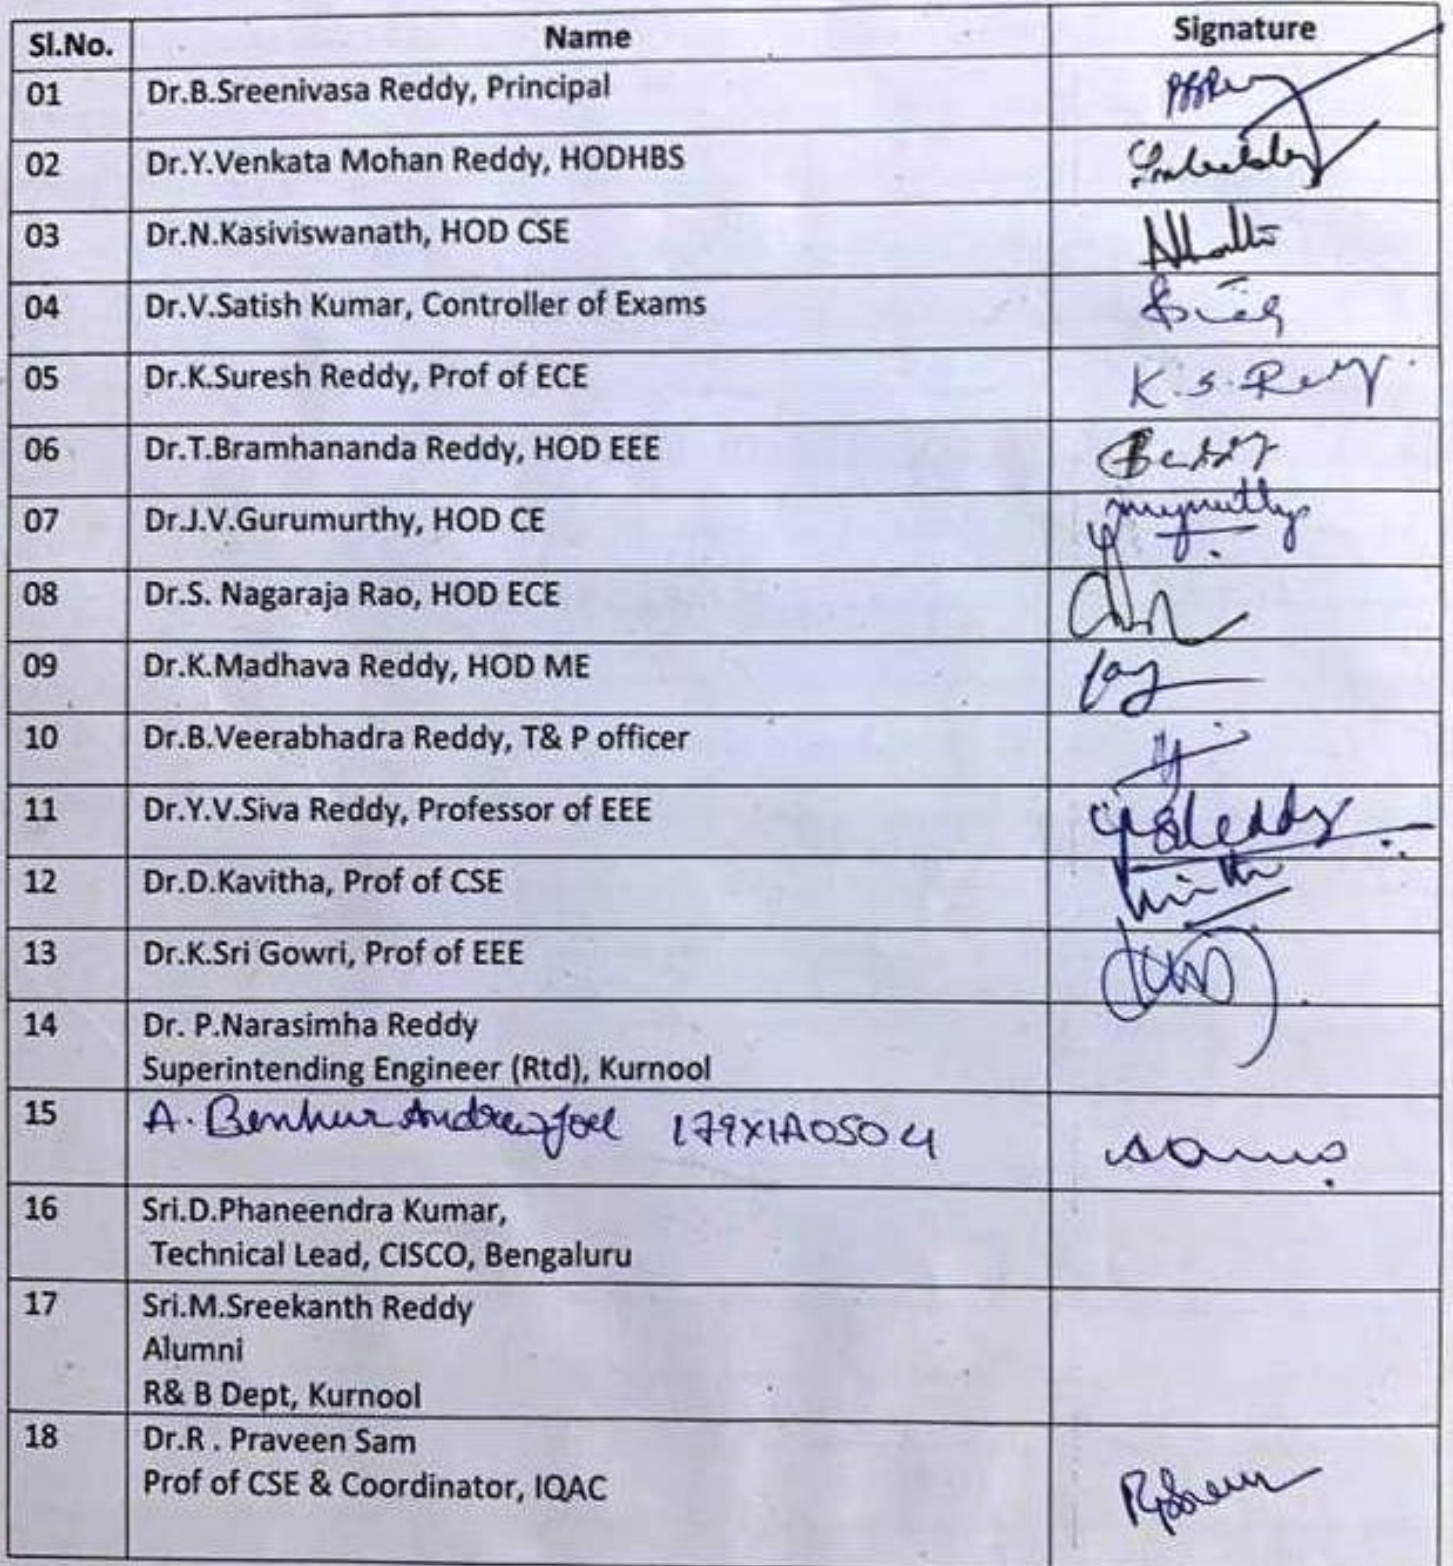 Sl.No. Name Signature
01 Dr.B.Sreenivasa Reddy, Principal
02 Dr.Y.Venkata Mohan Reddy, HODHBS
03 Dr.N.Kasiviswanath, HOD CSE
04 Dr.V.Satish Kumar, Controller of Exams
05 Dr.K.Suresh Reddy, Prof of ECE K.S.Reddy
06 Dr.T.Bramhananda Reddy, HOD EEE
07 Dr.J.V.Gurumurthy, HOD CE
08 Dr.S. Nagaraja Rao, HOD ECE
09 Dr.K.Madhava Reddy, HOD ME
10 Dr.B.Veerabhadra Reddy, T& P officer
11 Dr.Y.V.Siva Reddy, Professor of EEE
12 Dr.D.Kavitha, Prof of CSE
13 Dr.K.Sri Gowri, Prof of EEE
14 Dr. P.Narasimha Reddy
Superintending Engineer (Rtd), Kurnool
15 A. Benhur Andrew Joel 179X1A0504
16 Sri.D.Phaneendra Kumar,
Technical Lead, CISCO, Bengaluru
17 Sri.M.Sreekanth Reddy
Alumni
R& B Dept, Kurnool
18 Dr.R . Praveen Sam
Prof of CSE & Coordinator, IQAC